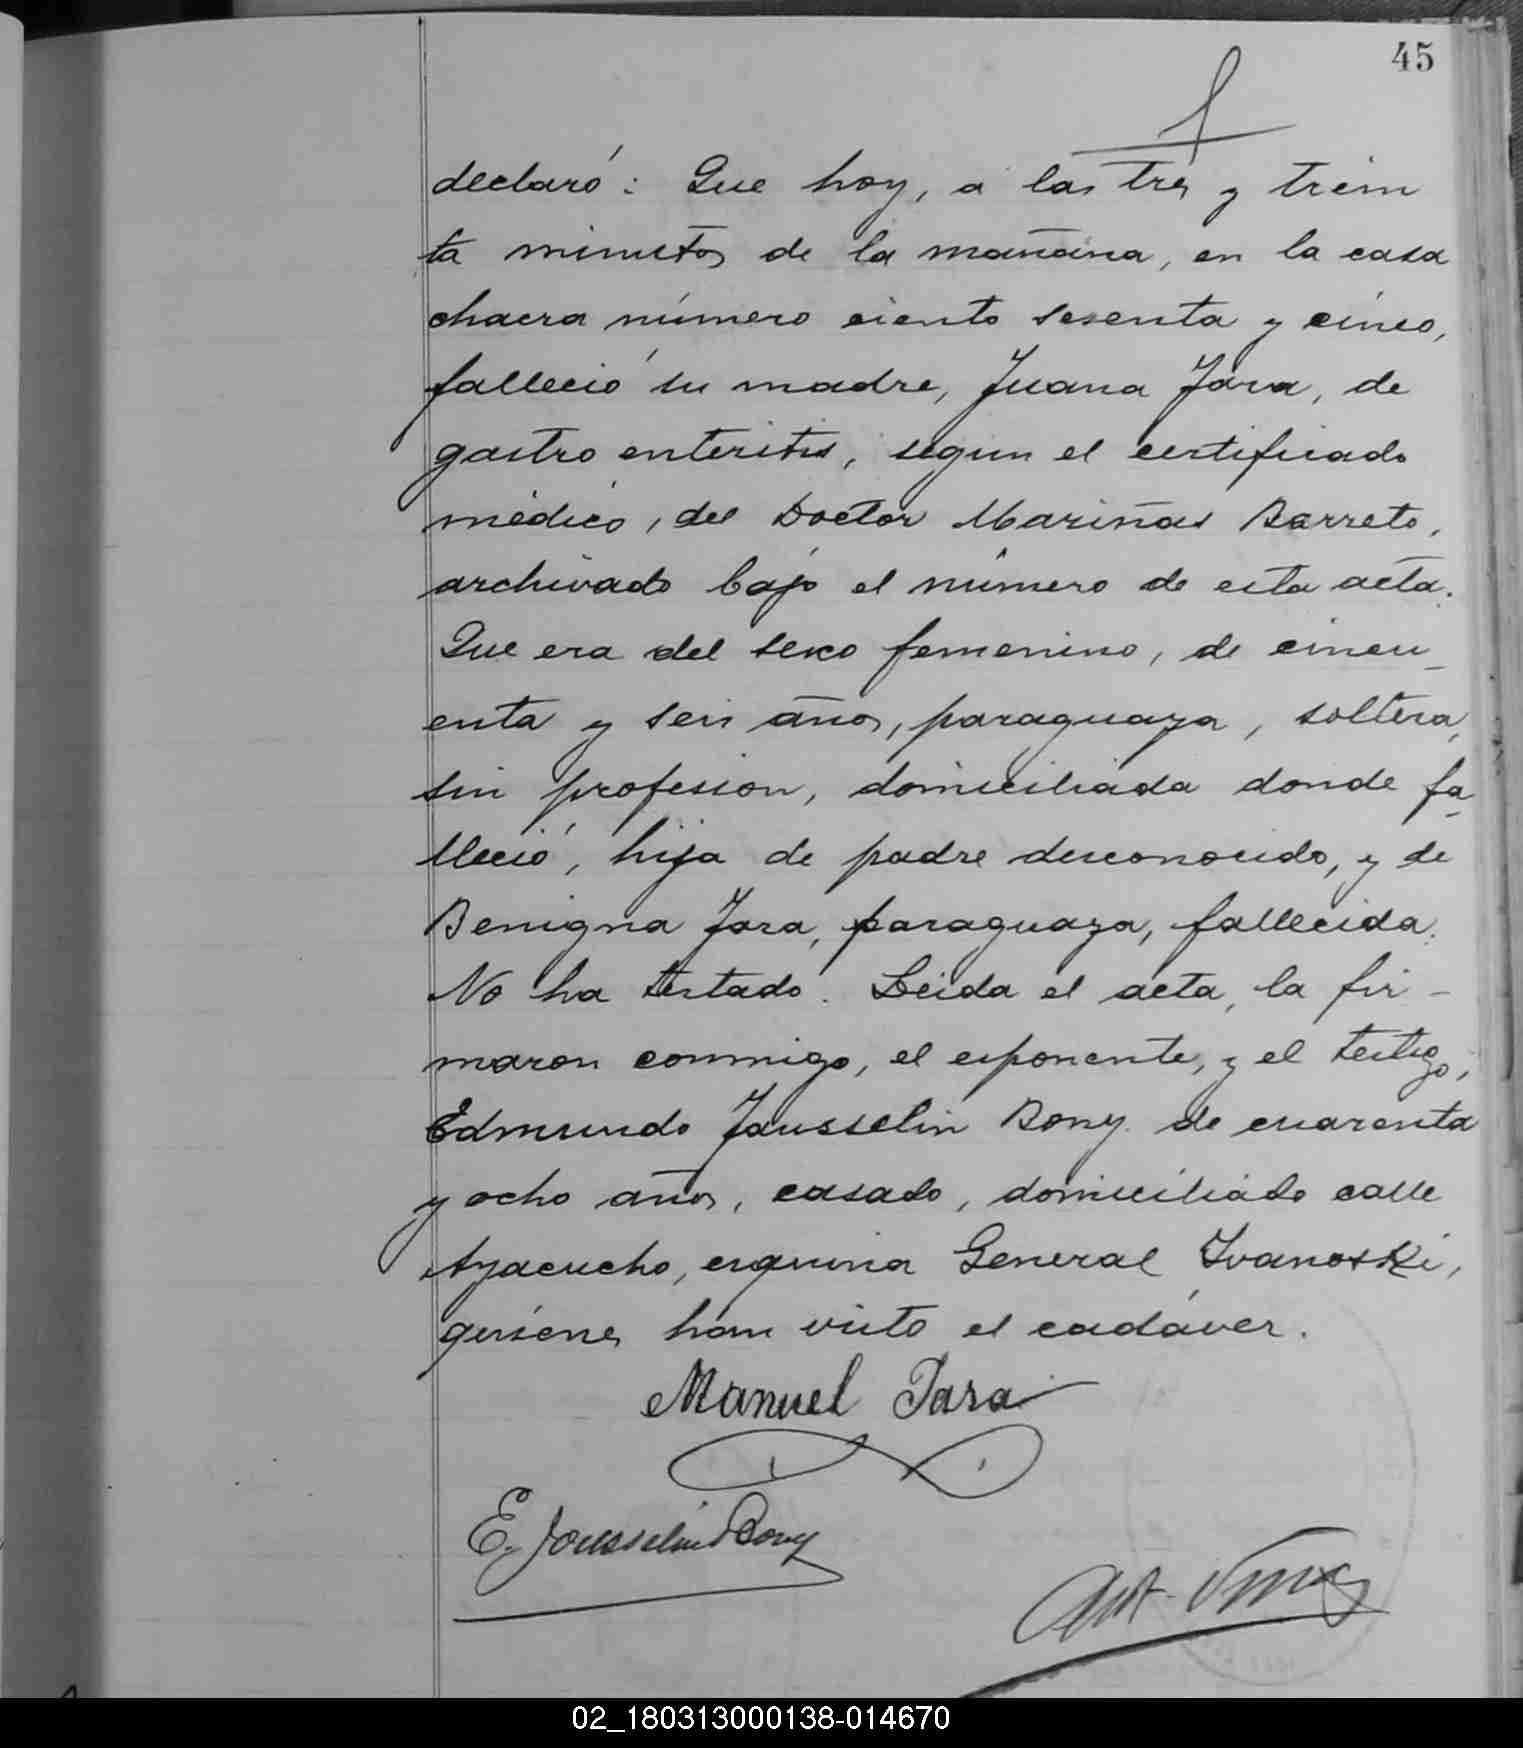 45
declaró: Que hoy, a las tres y trein
ta minutos de la mañana, en la casa
chacra número ciento sesenta y cinco,
falleció su madre, Juana Jara, de
gastro enteritis, segun el certificado
médico, del Doctor Mariñas Barreto,
archivado bajo el número de esta acta.
Que era del sexo femenino, de cincu_
enta y seis años, paraguaya, soltera,
sin profesion, domiciliada donde fa_
lleció, hija de padre desconocido, y de
Benigna Jara, paraguaya, fallecida.
No ha testado. Leida el acta, la fir-
maron conmigo, el esponente, y el testigo,
Edmundo Jousselin Bony de cuarenta
y ocho años, casado, domiciliado calle
Ayacucho, esquina General Ivanoski,
quienes han visto el cadáver.
Manuel Jara
E. Jousselin Bony
02_180313000138-014670